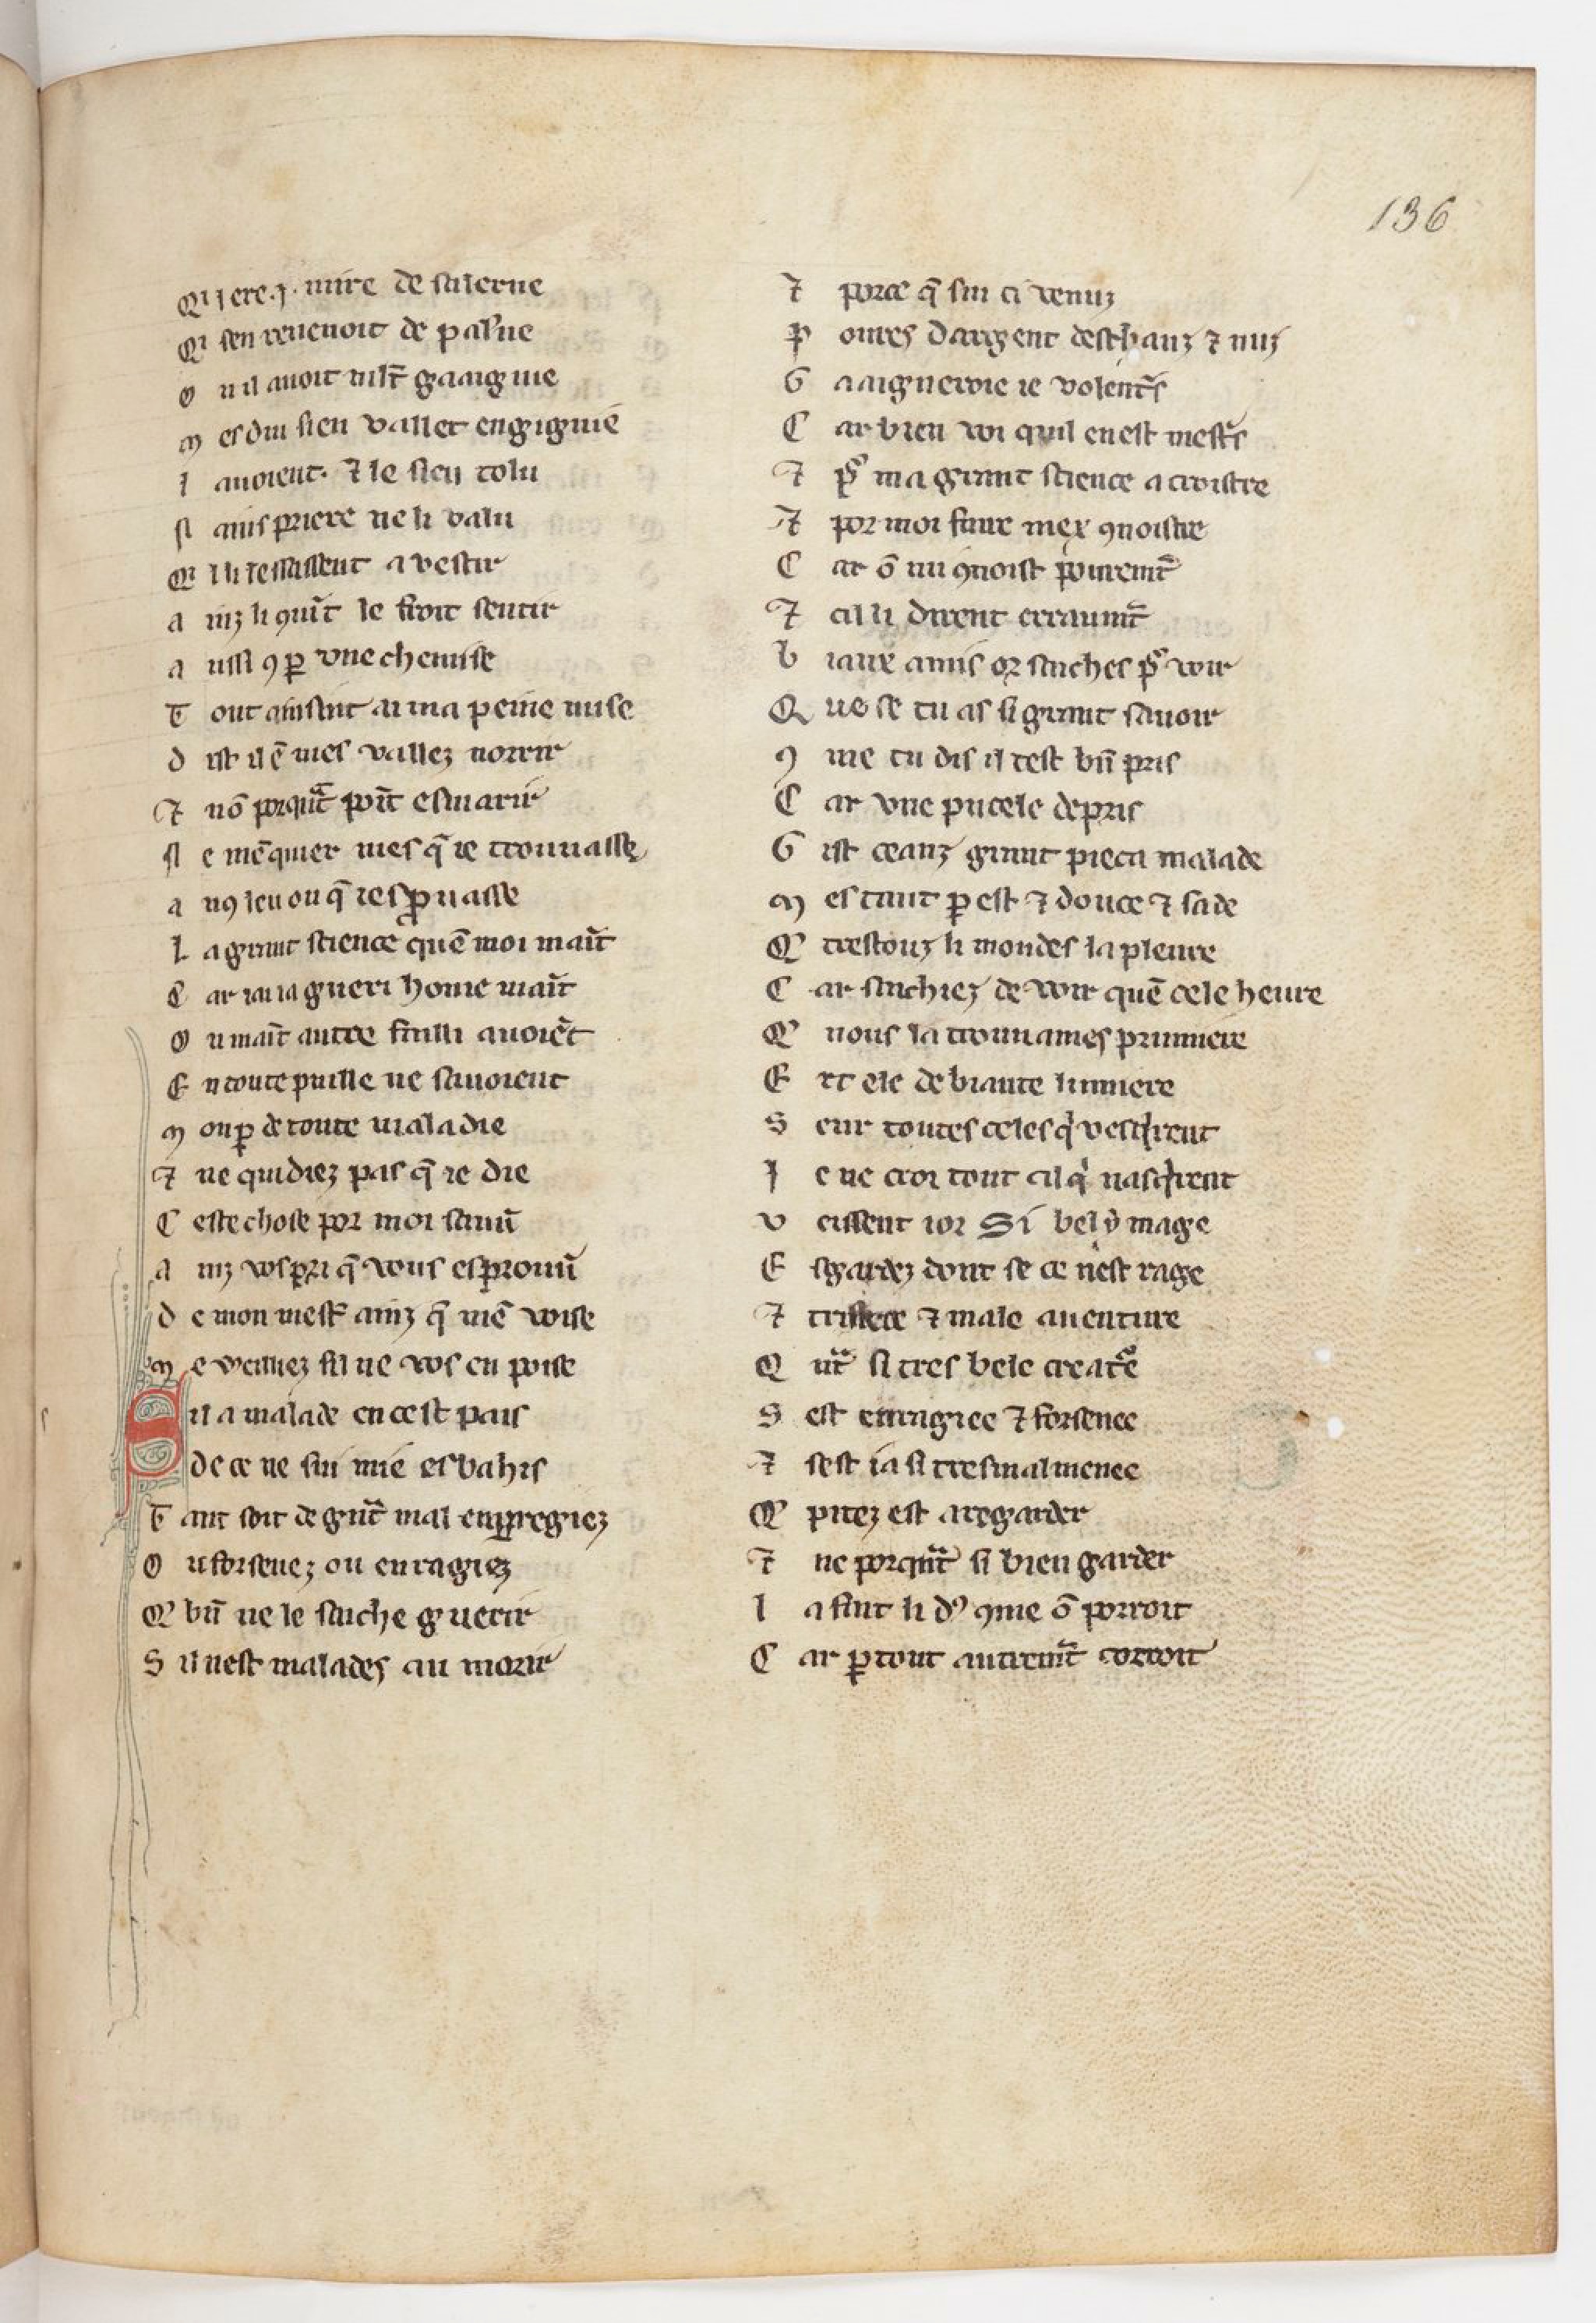 136
Qi iere .j. mire de salerne
Qi sen reuenoit de palerne
O u il auoit mlt̃ gaaignie
M es dui sien vallet engignie
l auoient. ⁊ le sien tolu
N anis priere ne li valu
Qi l li lessassent a vestir
A inz li 9uīt le froit sentir
A ussi 9 ꝑ vne chemise
T out ainsint ai ma peine mise
D ist il ē mes vallez norrir
⁊ nō porquāt poīt esmarir
N e mē quier mes q̄ ie trouuasse
A u9 leu ou q̄ ie sproasse
L a grant science quē moi maīt
C ar iai ia gueri home maīt
O u maīt autre failli auoiēt
E n toute puille ne sauoient
M on ꝑ de toute maladie
⁊ ne quidiez pas q̄ ie die
C este chose por moi sauū
A inz vos pri q̄ vous esprouū
D e mon mest̃ ainz q̄ mē voise
M e veillez sil ne vos en poise
S il a malade en cest pais
de ce ne sui mie esbahis
T ant soit de grāt mal enꝑregiez
O u forsenez ou enragiez
Q' bn̄ ne le sache guerir
S il nest malades au morir
⁊ porce q̄ sui ci venuz
P oures dargent deschauz ⁊ nuz
G aaigneroie ie volent̃s
C ar bien voi quil en est mest̃s
⁊ pͦ ma grant science acroistre
⁊ por moi faire mex 9noistre
C ar ō mi 9noist pourem̄t
⁊ cil li dirent erraum̄t
B iaux amis or saches pͦ voir
Q ue se tu as si grant sauoir
9 me tu dis il test bn̄ pris
C ar vne pucele de pris
G ist ceanz grant pieca malade
M es tant ꝑ est ⁊ douce ⁊ sade
Q' trestouz li mondes la pleure
C ar sachiez de voir quē cele heure
Q' nous la trouuames prumiere
E rt ele de biaute lumiere
S eur toutes celes qͥ vesqͥrent
J e ne croi tout cil qͥ nasqͥrent
V eissent ior Si bel ymage
E sgardez dont se ce nest rage
⁊ tristece ⁊ male auenture
Q ūt si tres bele creatͬe
S est enragiee ⁊ forsenee
⁊ sest ia si tresmalmenee
Q' pitez est a regarder
⁊ ne porquāt si bien garder
l a fait li d9 9me ō porroit
C ar ꝑ tout autrem̄t corroit